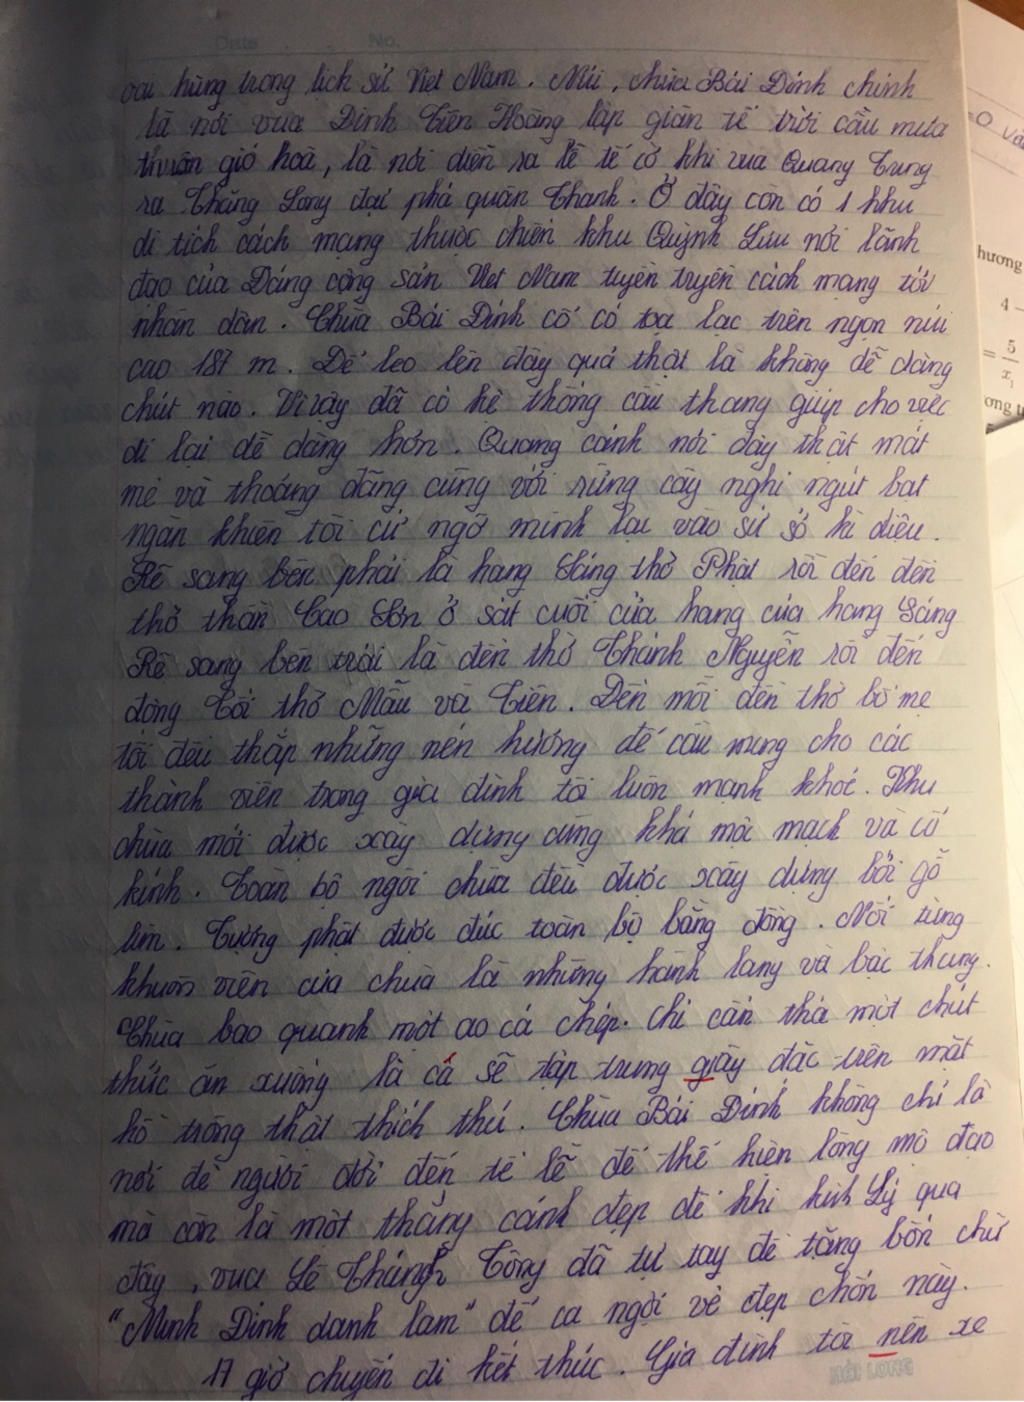 Date No.
oai hùng trong lịch sử Việt Nam. Núi, chùa Bái Đính chính
là nơi vua Đinh Tiên Hoàng lập giàn tế trời cầu mưa
thuận gió hoà, là nơi diễn ra lễ tế cờ khi vua Quang Trung
ra Thăng Long đại phá quân Thanh. Ở đây còn có 1 khu
di tích cách mạng thuộc chiến khu Quỳnh Lưu nơi lãnh
đạo của Đảng cộng sản Việt Nam tuyên truyền cách mạng tới
nhân dân. Chùa Bái Đính cổ có toạ lạc trên ngọn núi
cao 187 m. Để leo lên đây quả thật là không dễ dàng
chút nào. Vì vậy đã có hệ thống cầu thang giúp cho việc
đi lại dễ dàng hơn. Quang cảnh nơi đây thật mát
mẻ và thoáng đãng cùng với rừng cây nghi ngút bạt
ngàn khiến tôi cứ ngỡ mình lạc vào sứ sở kì diệu.
Rẽ sang bên phải là hang Sáng thờ Phật rồi đến đền
thờ thần Cao Sơn ở sát cuối của hang của hang Sáng
Rẽ sang bên trái là đền thờ Thánh Nguyễn rồi đến
động Tối thờ Mẫu và Tiên. Đến mỗi đền thờ bố mẹ
tôi đều thắp những nén hương để cầu mong cho các
thành viên trong gia đình tôi luôn mạnh khoẻ. Khu
chùa mới được xây dựng cũng khá mộc mạch và cổ
kính. Toàn bộ ngôi chùa đều được xây dựng bởi gỗ
lim. Tượng phật được đúc toàn bộ bằng đồng. Nối từng
khuôn viên của chùa là những hành lang và bậc thang.
Chùa bao quanh một ao cá chép. Chỉ cần thả một chút
thức ăn xuống là cá sẽ tập trung giày đặc trên mặt
hồ trông thật thích thú. Chùa Bái Đính không chỉ là
nơi để người đời đến tế lễ để thể hiện lòng mộ đạo
mà còn là một thắng cảnh đẹp để khi kinh lý qua
đây, vua Lê Thánh Tông đã tự tay đề tặng bốn chữ
"Minh Đỉnh danh lam" để ca ngợi vẻ đẹp chốn này.
17 giờ chuyến đi kết thúc. Gia đình tôi nên xe
HẢI LONG
hương
4 -
= 5
x₁